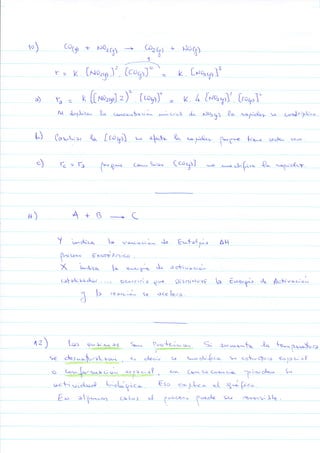 10) CO(g) + NO2(g) → CO2(g) + NO(g)
r = k. [NO2(g)]². [CO(g)]⁰ = k. [NO2(g)]²
a) r2 = k ([NO2(g)] 2)² [CO(g)]⁰ = k. 4 [NO2(g)]². [CO(g)]⁰
Al duplicar la concentración inicial de NO2(g) la rapidez se cuadriplica.
b) Cambiar la [CO(g)] no afecta la rapidez porque tiene orden cero
c) rc = r2 porque cambiar [CO(g)] no modifica la rapidez.
11) A + B → C
Y indica la variación de Entalpía ΔH
proceso Exotérmico.
X indica la energía de activación
catalizador ... sustancia que disminuye la Energía de Activación
y la reacción se acelera.
12) Las enzimas son Proteínas. Si aumenta la temperatura
se desnaturalizan, es decir se modifica su estructura espacial
o conformación espacial, en consecuencia pierden su
actividad biológica. Eso explica el gráfico.
En algunos casos el proceso puede ser reversible.